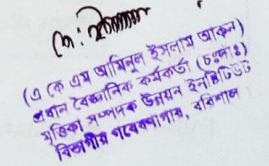 (এ কে এম আমিনুল ইসলাম আকন)
প্রধান বৈজ্ঞানিক কর্মকর্তা (চঃদাঃ)
মৃত্তিকা সম্পদক উন্নয়ন ইনষ্টিটিউট
বিভাগীয় গবেষণাগার, বরিশাল